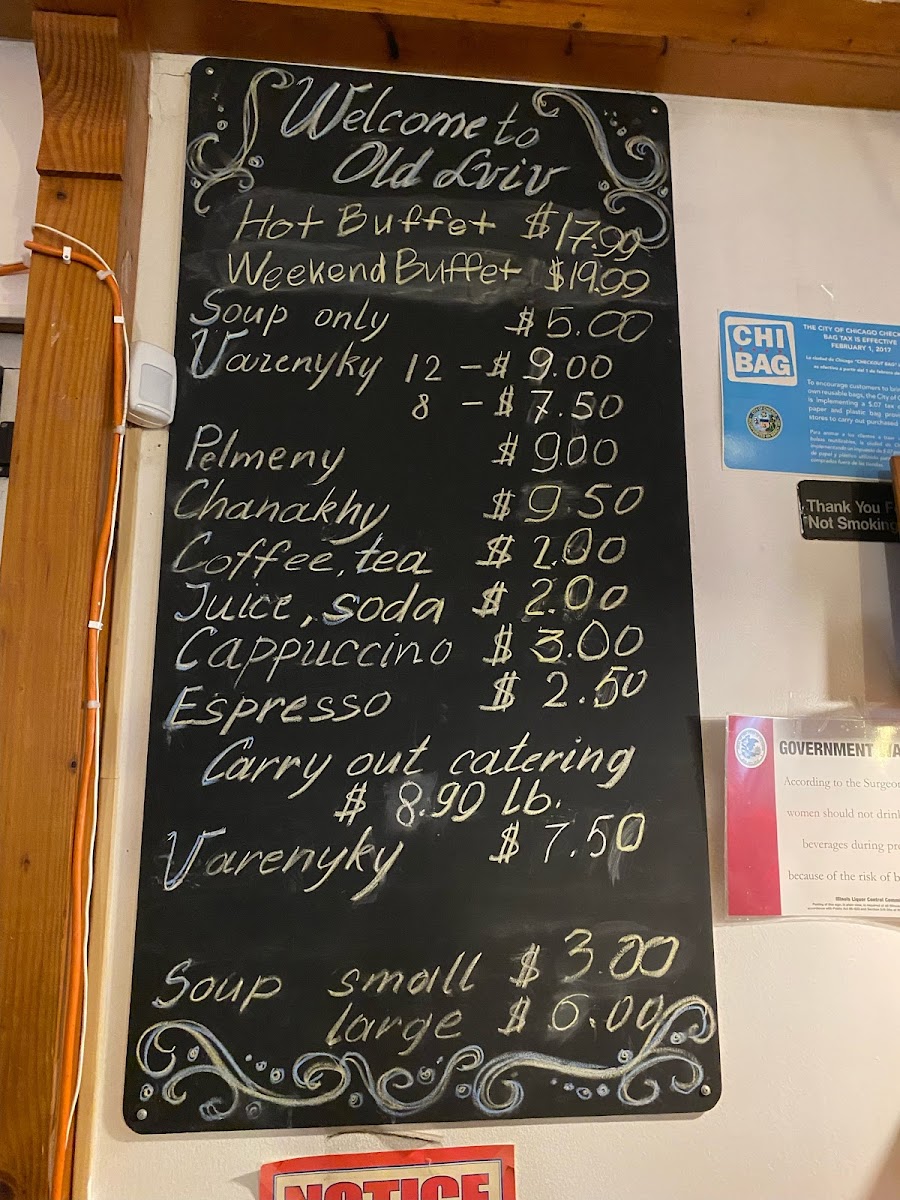 Welcome to
Old Lviv
Hot Buffet $17.99
Weekend Buffet $19.99
Soup only $5.00
Varenyky 12 - $9.00
8 - $7.50
Pelmeny $9.00
Chanakhy $9.50
Coffee, tea $2.00
Juice, soda $2.00
Cappuccino $3.00
Espresso $2.50
Carry out catering
$8.90 lb.
Varenyky $7.50
Soup small $3.00
large $6.00
CHI
BAG
THE CITY OF CHICAGO CHECK
BAG TAX IS EFFECTIVE
FEBRUARY 1, 2017
To encourage customers to bri
own reusable bags, the City of C
is implementing a $.07 tax
paper and plastic bag prov
stores to carry out purchased
Thank You F
Not Smoking
GOVERNMENT WA
According to the Surgeo
women should not drin
beverages during pre
because of the risk of b
NOTICE